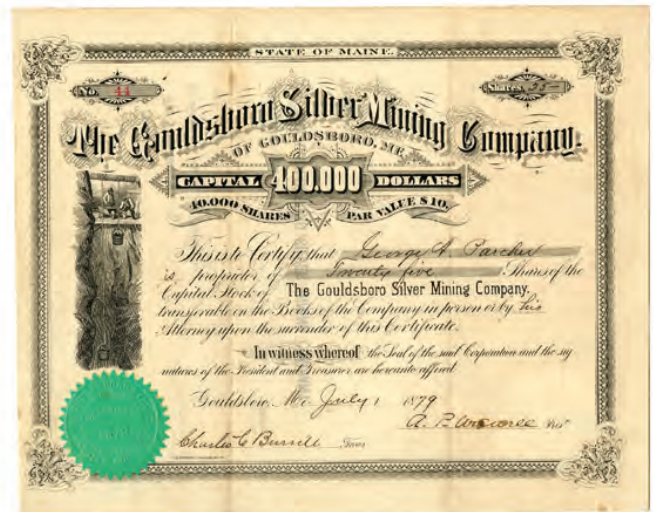 STATE OF MAINE.
No. 44
Shares 25
The Gouldsboro Silver Mining Company.
OF GOULDSBORO, ME.
CAPITAL 400.000 DOLLARS
40.000 SHARES PAR VALUE $10.
This is to Certify that George A. Parcher
is proprietor of Twenty five Shares of the
Capital Stock of The Gouldsboro Silver Mining Company.
transferable on the Books of the Company in person or by his
Attorney upon the surrender of this Certificate.
In witness whereof the Seal of the said Corporation and the sig
natures of the President and Treasurer are hereunto affixed
Gouldsboro, Me. July 1 1879
A. B. Pres't
Charles C Burrill Treas